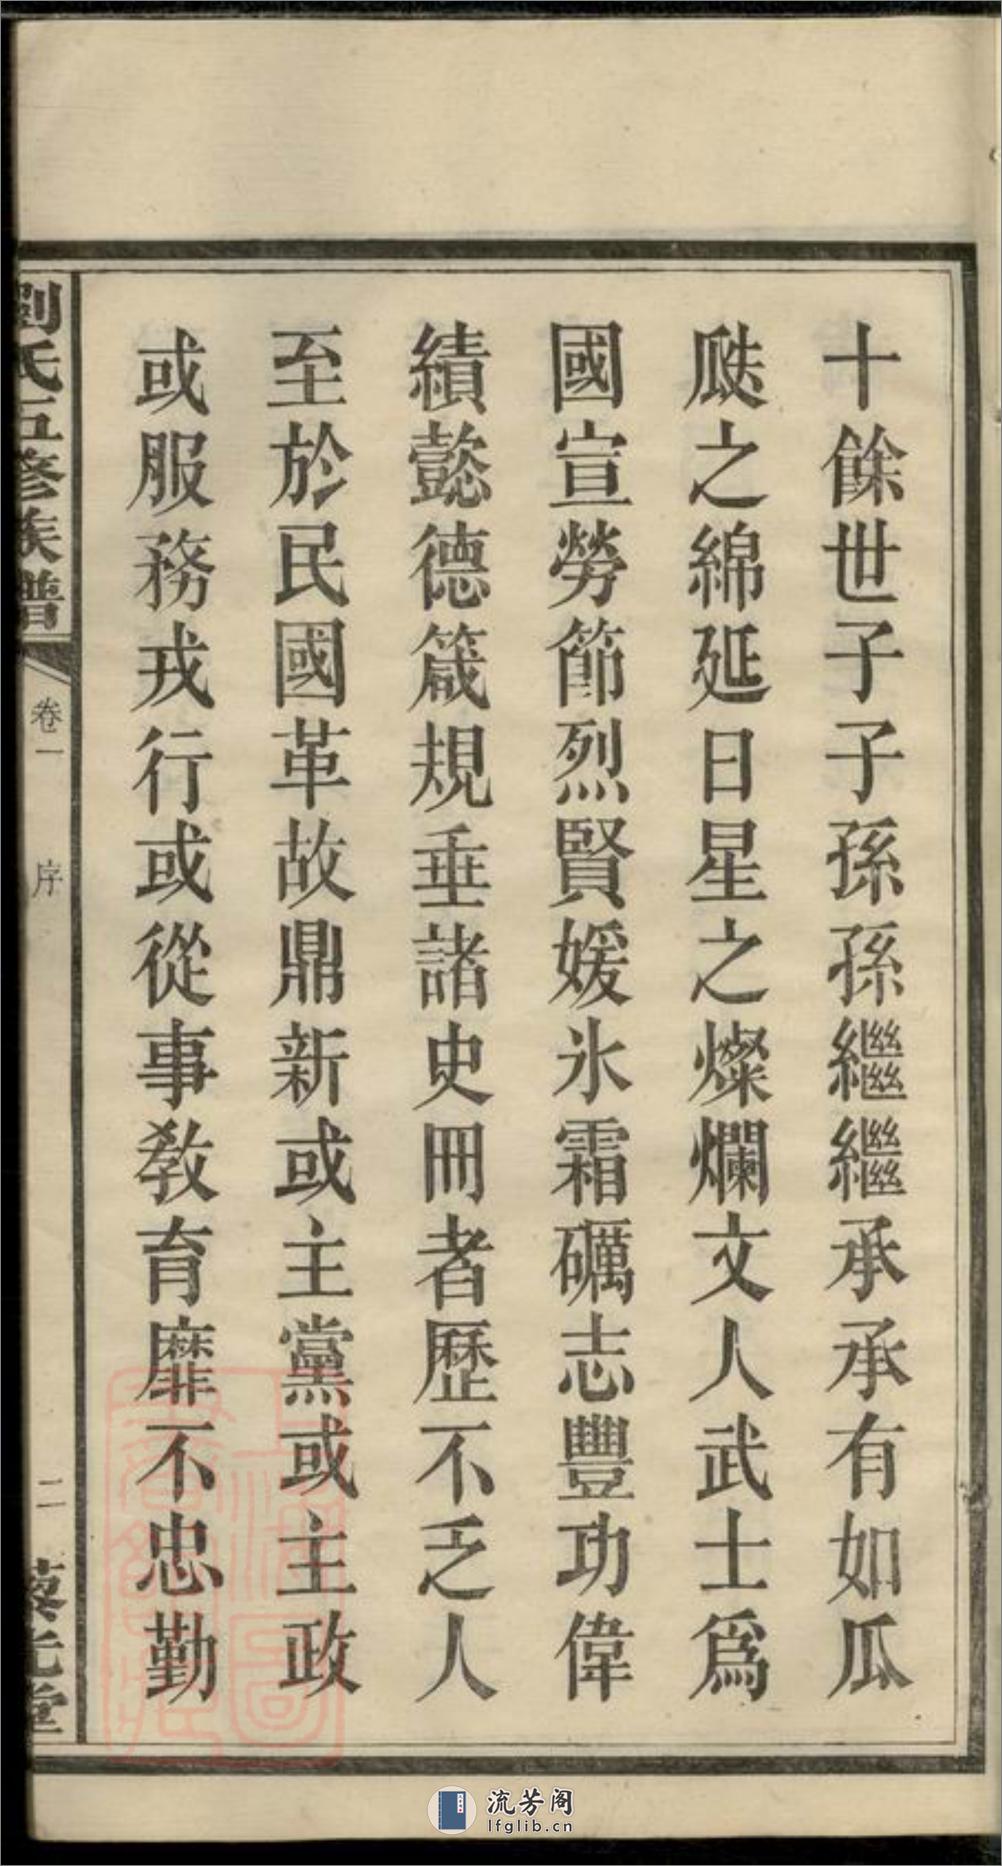 十餘世子子孫孫繼繼承承有如瓜
瓞之綿延日星之燦爛文人武士為
國宣勞節烈賢媛氷霜礪志豐功偉
績懿德箴規垂諸史冊者歷不乏人
至於民國革故鼎新或主黨或主政
或服務戎行或從事教育靡不忠勤
劉氏五修族譜
卷一
序
二
藜光堂
流芳阁
lfglib.cn